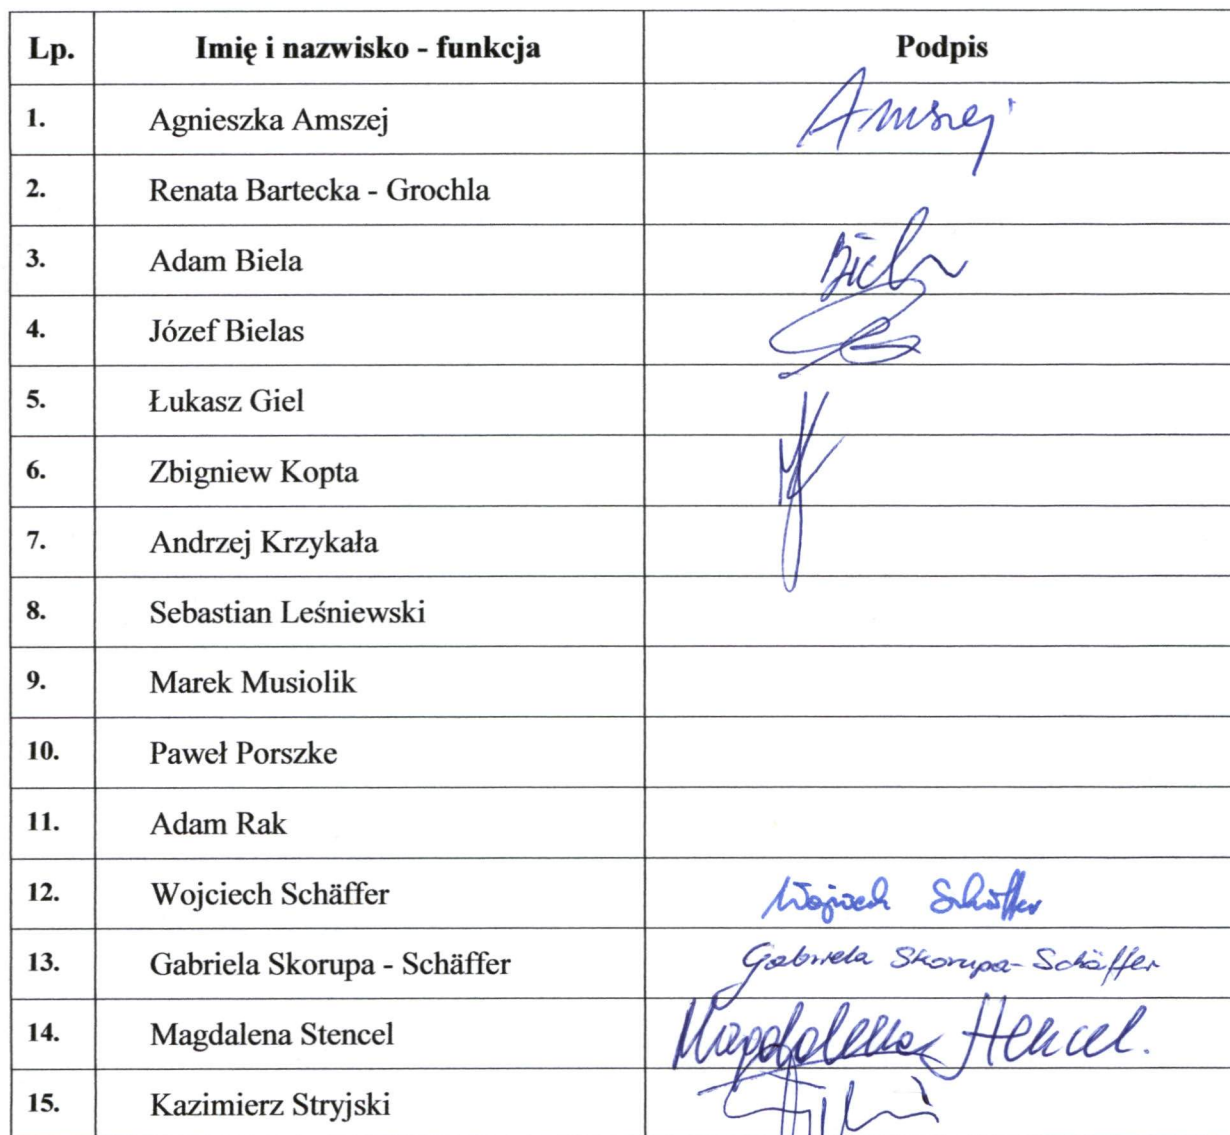 Lp. Imię i nazwisko - funkcja Podpis
1. Agnieszka Amszej Amszej
2. Renata Bartecka - Grochla
3. Adam Biela Biela
4. Józef Bielas
5. Łukasz Giel
6. Zbigniew Kopta
7. Andrzej Krzykała
8. Sebastian Leśniewski
9. Marek Musiolik
10. Paweł Porszke
11. Adam Rak
12. Wojciech Schäffer Wojciech Schäffer
13. Gabriela Skorupa - Schäffer Gabriela Skorupa-Schäffer
14. Magdalena Stencel Magdalena Stencel.
15. Kazimierz Stryjski